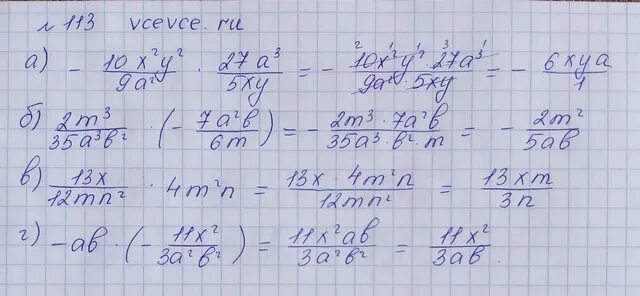 № 113 vcevce.ru
а) - 10x²y²/9a² · 27a³/5xy = - 10x²y² · 27a³/9a² · 5xy = - 6xya/1
б) 2m³/35a³b² · (- 7a²b/6m) = - 2m³ · 7a²b/35a³ · b² · m = - 2m²/5ab
в) 13x/12mn² · 4m²n = 13x · 4m²n/12mn² = 13xm/3n
г) -ab · (- 11x²/3a²b²) = 11x²ab/3a²b² = 11x²/3ab.